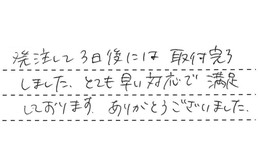 発注して3日後には 取付完了
しました、とても早い対応で 満足
しております。ありがとうございました.